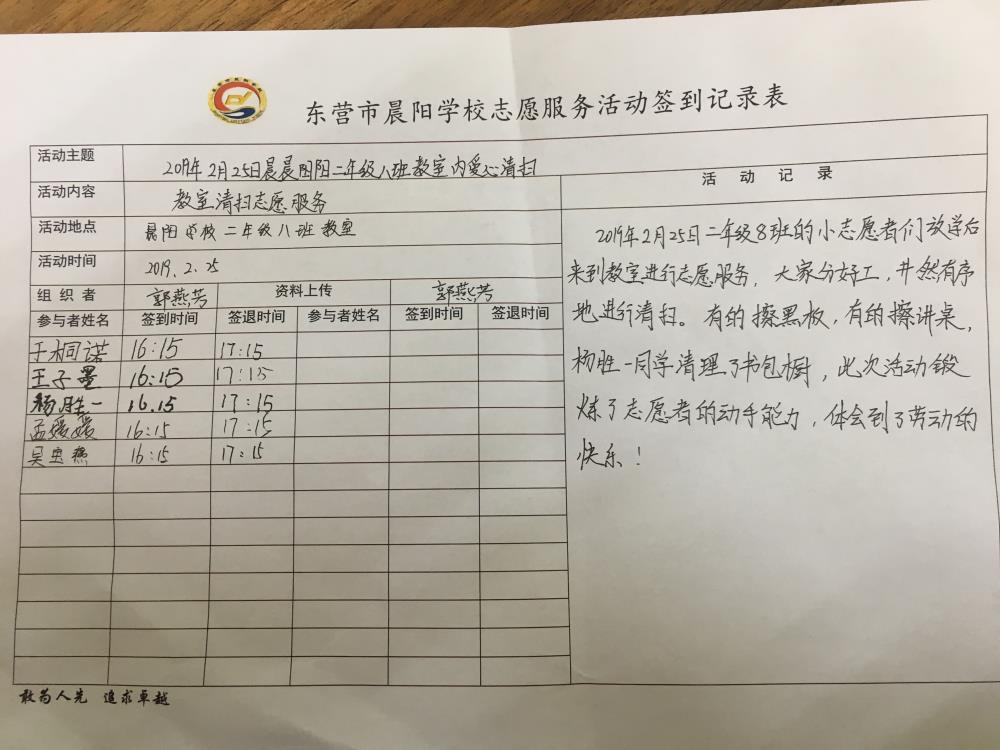 东营市晨阳学校志愿服务活动签到记录表
活动主题 2019年2月25日晨晨阳阳二年级八班教室内爱心清扫
活动内容 教室清扫志愿服务
活动地点 晨阳学校二年级八班教室
活动时间 2019.2.25
组织者 郭燕芳 资料上传 郭燕芳
参与者姓名 签到时间 签退时间 参与者姓名 签到时间 签退时间
于桐诺 16:15 17:15
王子墨 16:15 17:15
杨胜一 16.15 17:15
孟媛媛 16:15 17:15
吴 燕 16:15 17:15
活动记录
2019年2月25日二年级8班的小志愿者们放学后
来到教室进行志愿服务,大家分好工,井然有序
地进行清扫。有的擦黑板,有的擦讲桌,
杨胜一同学清理了书包橱,此次活动锻
炼了志愿者的动手能力,体会到了劳动的
快乐!
敢为人先 追求卓越